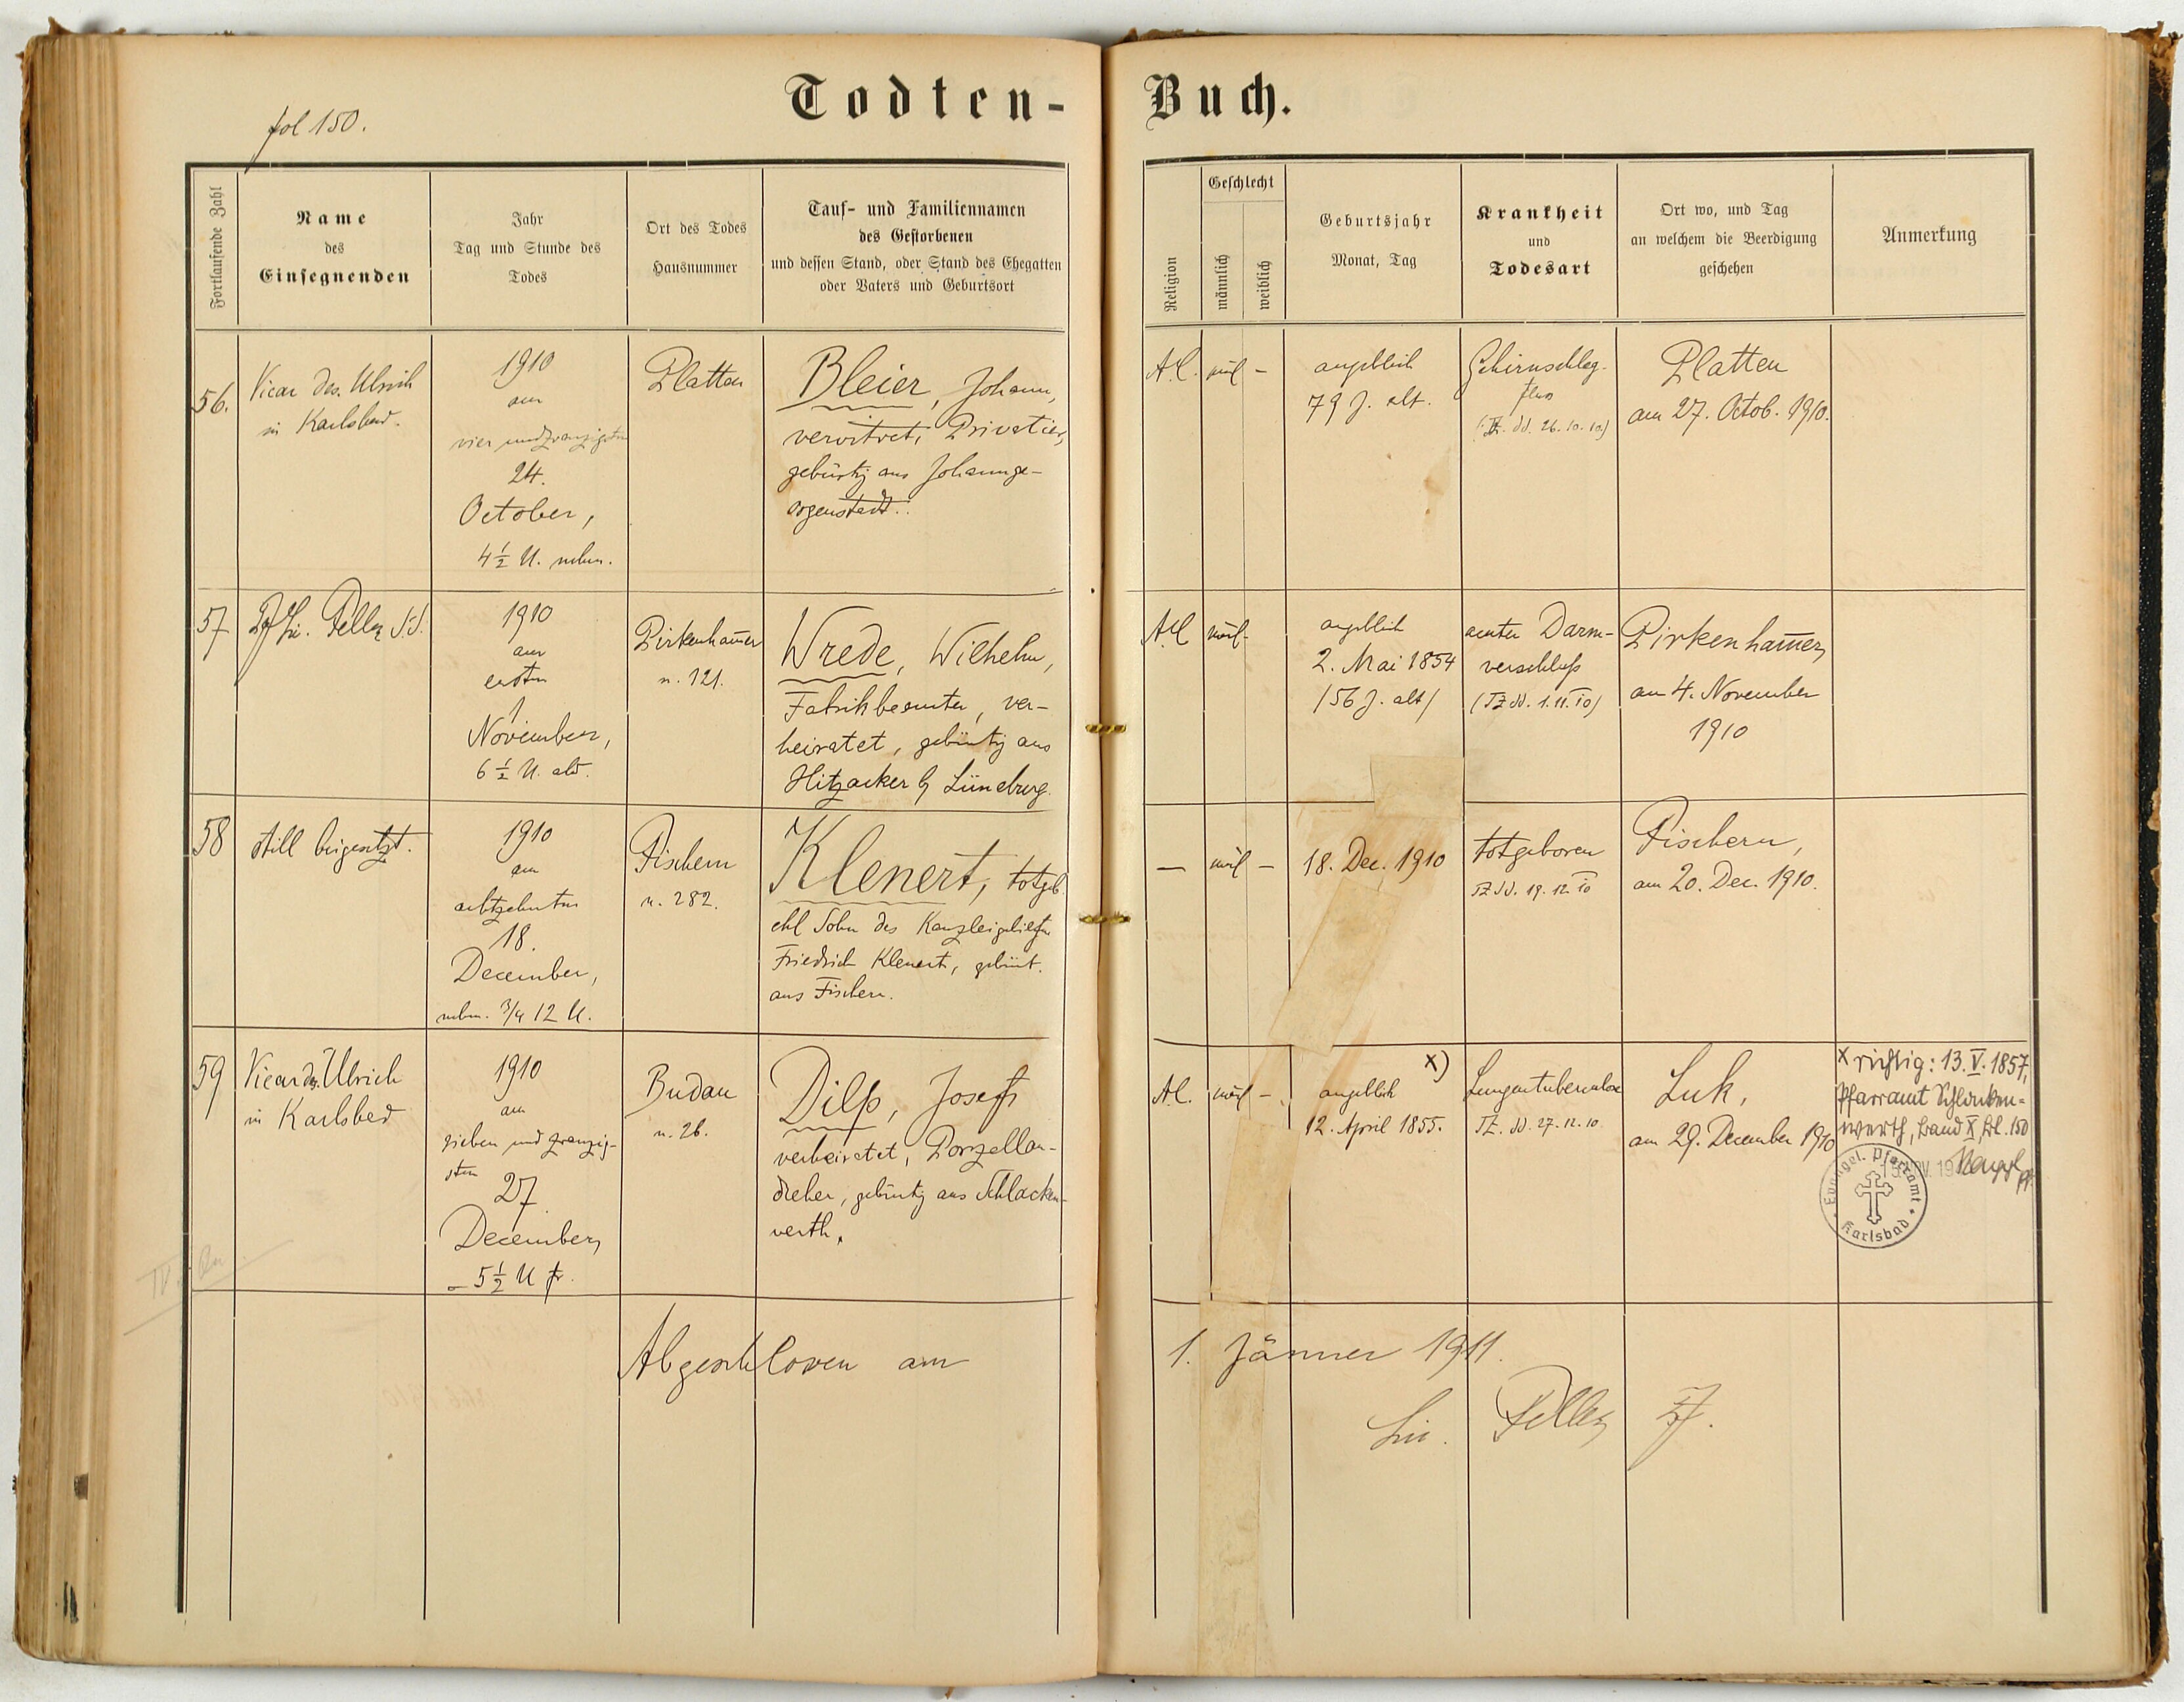 Todten-Buch.
fol 150.
Fortlaufende Zahl
Name
des
Einsegnenden
Jahr
Tag und Stunde des
Todes
Ort des Todes
Hausnummer
Tauf- und Familiennamen
des Gestorbenen
und dessen Stand, oder Stand des Ehegatten
oder Vaters und Geburtsort
Religion
Geschlecht
männlich
weiblich
Geburtsjahr
Monat, Tag
Krankheit
und
Todesart
Ort wo, und Tag
an welchem die Beerdigung
geschehen
Anmerkung
56.
Vicar des. Ulrich
in Karlsbad.
1910
am
vier und zwanzigsten
24.
October,
4 ½ U. nchm.
Platten
Bleier, Johann,
verwitwet, Privatier,
gebürtig aus Johannge-
orgenstadt.
A.C.
mäl -
angeblich
79 J. alt.
Gehirnschlag-
fluss
(TZ. dd. 26.10.10)
Platten
am 27. Octob. 1910.
57
Pf. Lic. Feller
1910
am
ersten
1
November,
6 ½ U. abd.
Pirkenham̄er
n. 121.
Wrede, Wilhelm,
Fabrikbeamter, ver-
heiratet, gebürtig aus
Hitzacker b/ Lüneburg.
A.C.
mäl -
angeblich
2. Mai 1854
/56 J. alt/
acuter Darm-
verschluß
(TZ dd. 1.11.10)
Pirkenham̄er,
am 4. November
1910
58
still beigesetzt.
1910
am
achtzehnten
18.
December,
nchm. 3/4 12 U.
Fischern
n. 282.
Klenert, totgeb.
ehl Sohn des Kanzleigehilfen
Friedrich Klenert, gebürt.
aus Fischern.
—
mäl -
18. Dec. 1910
totgeboren
TZ dd. 19.12.10
Fischern,
am 20. Dec. 1910.
59
Vicar des. Ulrich
in Karlsbad
1910
am
sieben und zwanzig-
sten
27
December,
5 ½ U fr.
Budau
n. 26.
Dilp, Josef
verheiratet, Porzellan-
dreher, gebürtig aus Schlacken-
werth.
A.C.
mäl -
x)
angeblich
12. April 1855.
Lungentuberculose
TZ. dd. 27.12.10
Luk,
am 29. December 1910
x richtig: 13.V.1857,
Pfarramt Schlacken-
werth, Band X, Fol. 150
Evangel. Pfarramt
Karlsbad
Abgeschlossen am 1. Jänner 1911.
Lic. Feller Pf.